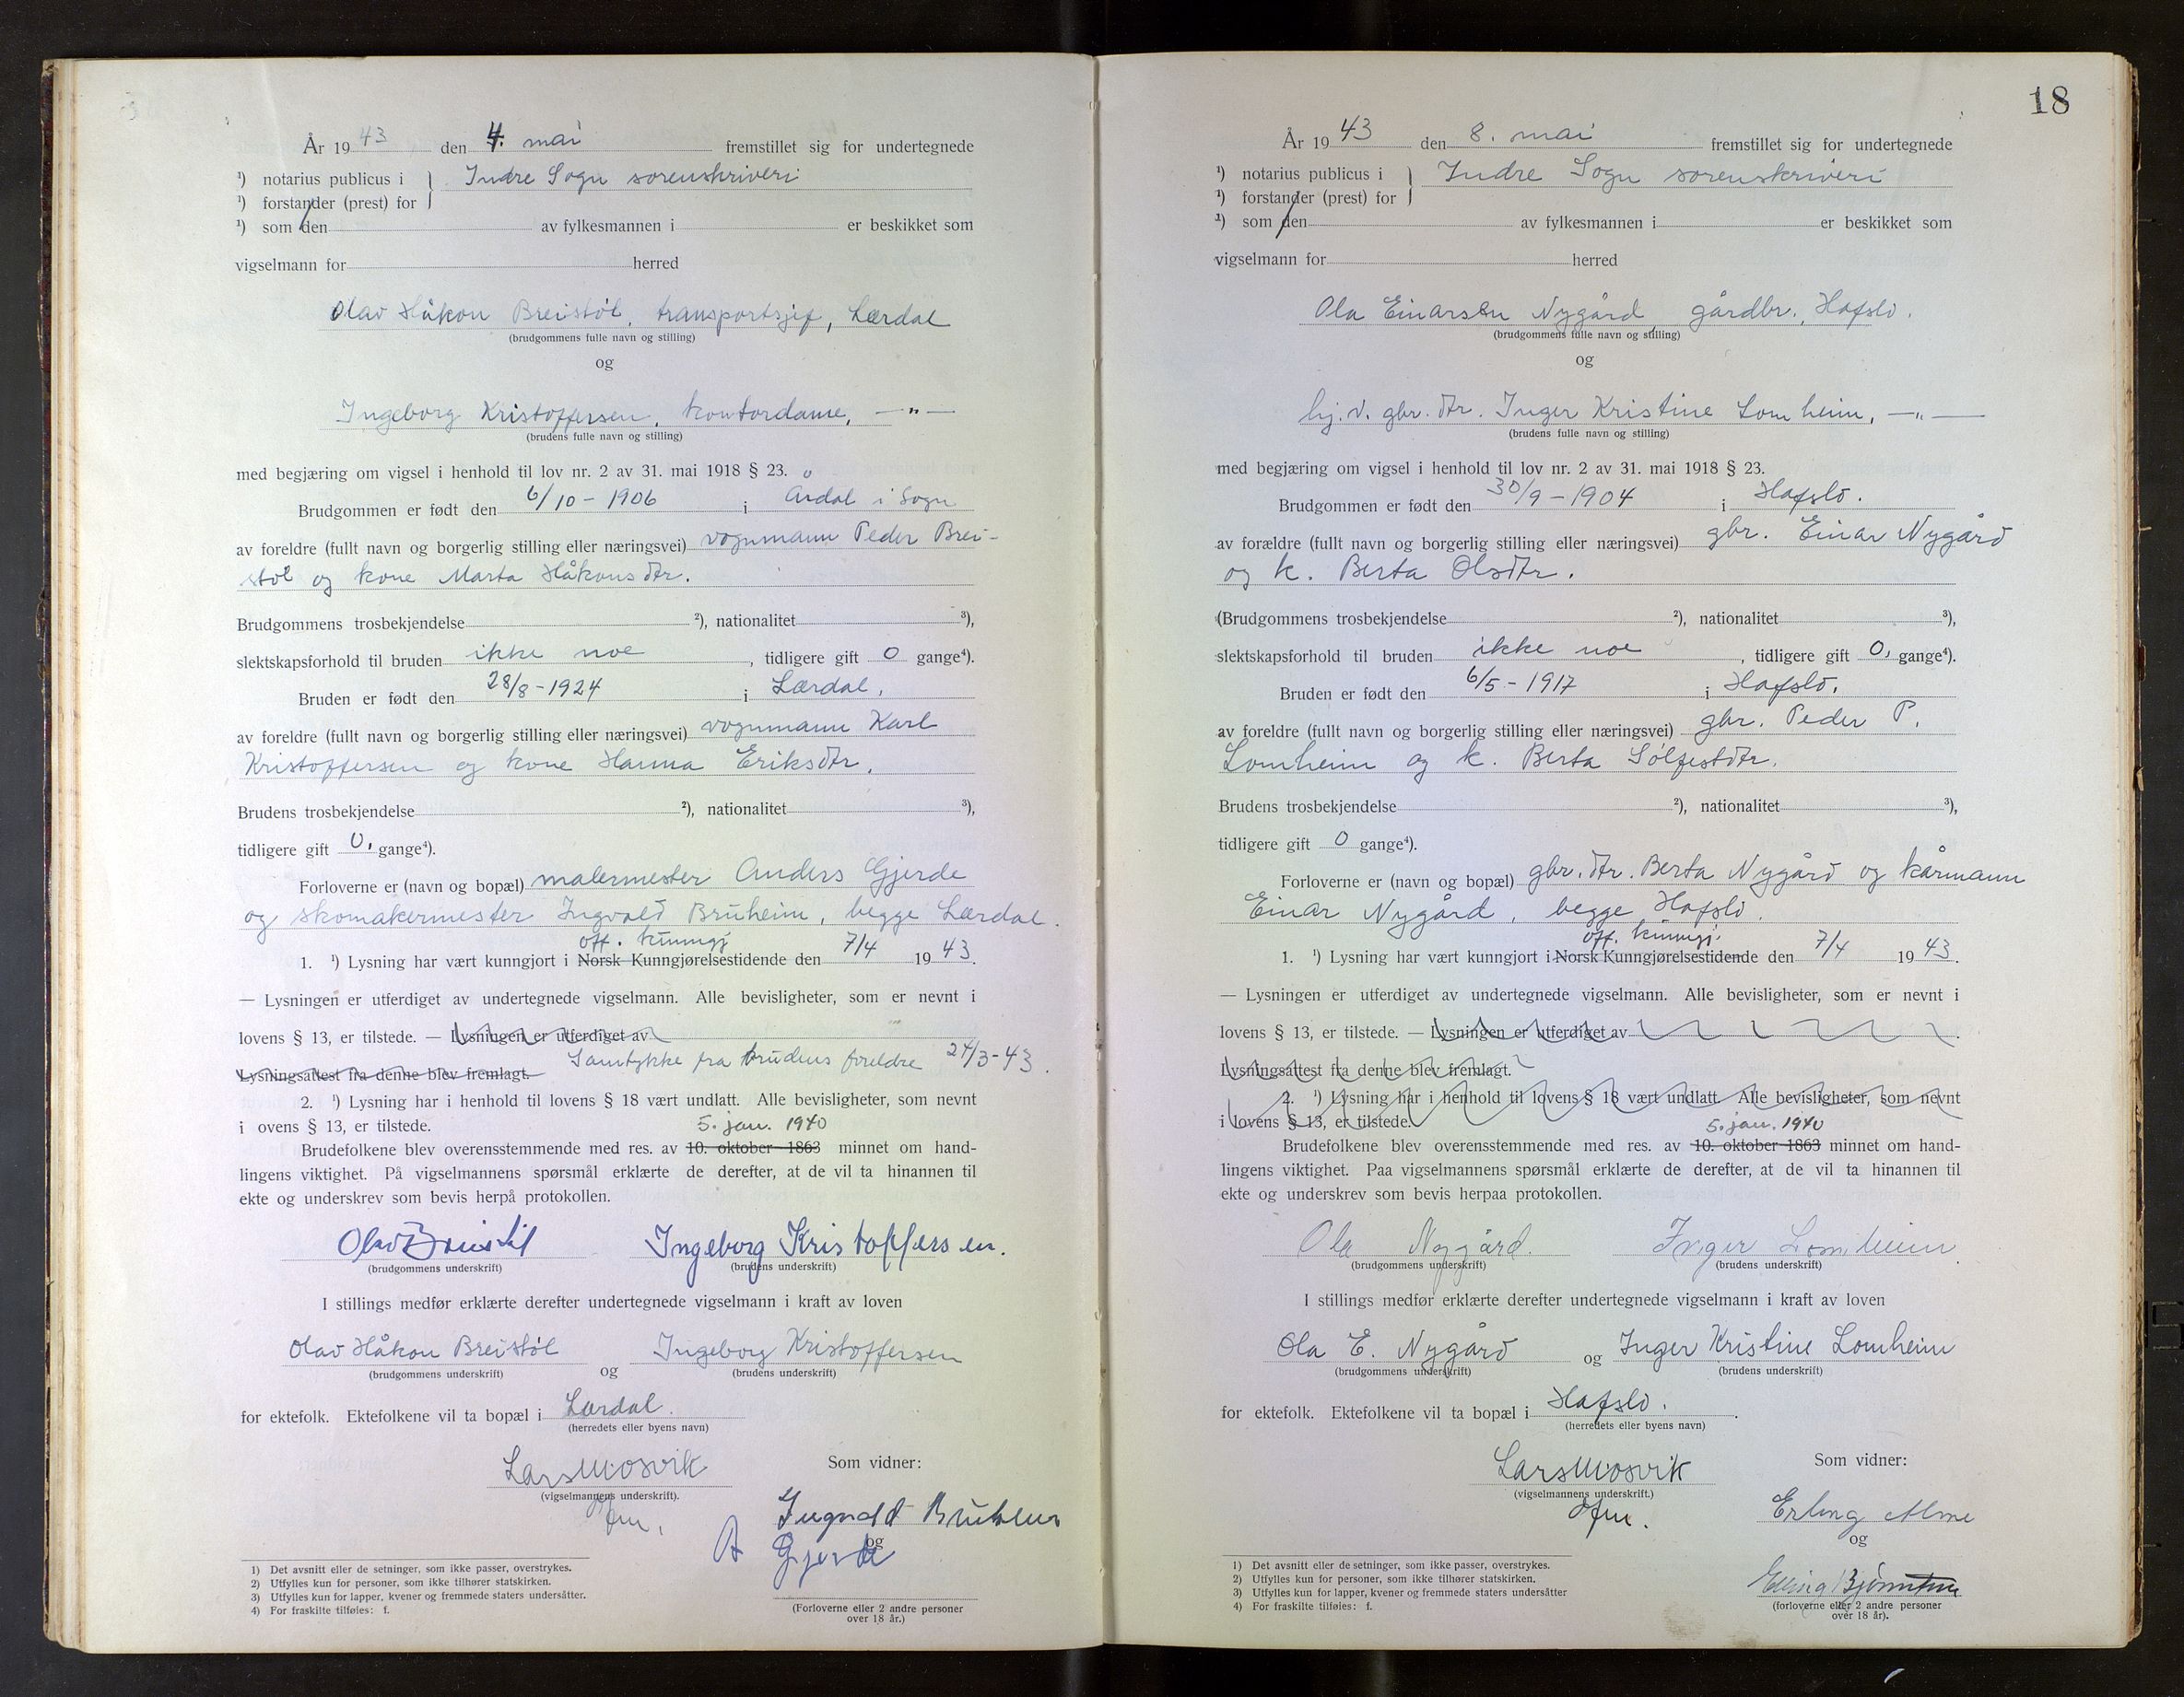 År 1943 den 4. mai fremstillet sig for undertegnede
¹) notarius publicus i } Indre Sogn sorenskriveri
¹) forstander (prest) for
¹) som den av fylkesmannen i er beskikket som
vigselmann for herred
Olav Håkon Breistøl, transportsjef, Lærdal
(brudgommens fulle navn og stilling)
og
Ingeborg Kristoffersen, kontordame, —"—
(brudens fulle navn og stilling)
med begjæring om vigsel i henhold til lov nr. 2 av 31. mai 1918 § 23.
Brudgommen er født den 6/10 - 1906 i Årdal i Sogn
av foreldre (fullt navn og borgerlig stilling eller næringsvei) vognmann Peder Brei-
støl og kone Marta Håkonsdtr.
Brudgommens trosbekjendelse ²), nationalitet ³),
slektskapsforhold til bruden ikke noe, tidligere gift 0 gange⁴).
Bruden er født den 28/8 - 1924 i Lærdal,
av foreldre (fullt navn og borgerlig stilling eller næringsvei) vognmann Karl
Kristoffersen og kone Hanna Eriksdtr.
Brudens trosbekjendelse ²), nationalitet ³),
tidligere gift 0, gange⁴).
Forloverne er (navn og bopæl) malermester Anders Gjerde
og skomakermester Ingvald Bruheim, begge Lærdal.
off. kunngj
1. ¹) Lysning har vært kunngjort i Norsk Kunngjørelsestidende den 7/4 1943.
— Lysningen er utferdiget av undertegnede vigselmann. Alle bevisligheter, som er nevnt i
lovens § 13, er tilstede. — Lysningen er utferdiget av
Lysningsattest fra denne blev fremlagt. Samtykke fra brudens foreldre 24/3-43.
2. ¹) Lysning har i henhold til lovens § 18 vært undlatt. Alle bevisligheter, som nevnt
i ovens § 13, er tilstede. 5. jan. 1940
Brudefolkene blev overensstemmende med res. av 10. oktober 1863 minnet om hand-
lingens viktighet. På vigselmannens spørsmål erklærte de derefter, at de vil ta hinannen til
ekte og underskrev som bevis herpå protokollen.
Olav Breistøl Ingeborg Kristoffersen.
(brudgommens underskrift) (brudens underskrift)
I stillings medfør erklærte derefter undertegnede vigselmann i kraft av loven
Olav Håkon Breistøl og Ingeborg Kristoffersen
(brudgommens underskrift) (brudens underskrift)
for ektefolk. Ektefolkene vil ta bopæl i Lærdal.
(herredets eller byens navn)
Lars Mosvik Som vidner:
(vigselmannens underskrift).
Ingvald Bruheim
og
A Gjerde
1) Det avsnitt eller de setninger, som ikke passer, overstrykes.
2) Utfylles kun for personer, som ikke tilhører statskirken.
3) Utfylles kun for lapper, kvener og fremmede staters undersåtter.
4) For fraskilte tilføies: f.
(Forloverne eller 2 andre personer
over 18 år.)
18
År 1943 den 8. mai fremstillet sig for undertegnede
¹) notarius publicus i } Indre Sogn sorenskriveri
¹) forstander (prest) for
¹) som den av fylkesmannen i er beskikket som
vigselmann for herred
Ola Einarsen Nygård, gårdbr., Hafslo.
(brudgommens fulle navn og stilling)
og
hj. v. gbr. dtr. Inger Kristine Lomheim, —"—
(brudens fulle navn og stilling)
med begjæring om vigsel i henhold til lov nr. 2 av 31. mai 1918 § 23.
Brudgommen er født den 30/9 - 1904 i Hafslo.
av forældre (fullt navn og borgerlig stilling eller næringsvei) gbr. Einar Nygård
og k. Berta Olsdtr.
(Brudgommens trosbekjendelse ²), nationalitet ³),
slektskapsforhold til bruden ikke noe, tidligere gift 0, gange⁴).
Bruden er født den 6/5 - 1917 i Hafslo.
av foreldre (fullt navn og borgerlig stilling eller næringsvei) gbr. Peder P.
Lomheim og k. Berta Sølfestdtr.
Brudens trosbekjendelse ²), nationalitet ³),
tidligere gift 0 gange⁴).
Forloverne er (navn og bopæl) gbr. dtr. Berta Nygård og kårmann
Einar Nygård, begge Hafslo.
off. kunngj.
1. ¹) Lysning har vært kunngjort i Norsk Kunngjørelsestidende den 7/4 1943.
— Lysningen er utferdiget av undertegnede vigselmann. Alle bevisligheter, som er nevnt i
lovens § 13, er tilstede. — Lysningen er utferdiget av
Lysningsattest fra denne blev fremlagt.
2. ¹) Lysning har i henhold til lovens § 18 vært undlatt. Alle bevisligheter, som nevnt
i lovens § 13, er tilstede. 5. jan. 1940
Brudefolkene blev overensstemmende med res. av 10. oktober 1863 minnet om hand-
lingens viktighet. Paa vigselmannens spørsmål erklærte de derefter, at de vil ta hinannen til
ekte og underskrev som bevis herpaa protokollen.
Ola Nygård. Inger Lomheim
(brudgommens underskrift) (brudens underskrift)
I stillings medfør erklærte derefter undertegnede vigselmann i kraft av loven
Ola E. Nygård og Inger Kristine Lomheim
(brudgommens underskrift) (brudens underskrift)
for ektefolk. Ektefolkene vil ta bopæl i Hafslo.
(herredets eller byens navn)
Lars Mosvik Som vidner:
(vigselmannens underskrift.)
Erling Alme
og
1) Det avsnitt eller de setninger, som ikke passer, overstrykes.
2) Utfylles kun for personer, som ikke tilhører statskirken.
3) Utfylles kun for lapper, kvener og fremmede staters undersåtter
4) For fraskilte tilføies: f.
(forloverne eller 2 andre personer
over 18 år).